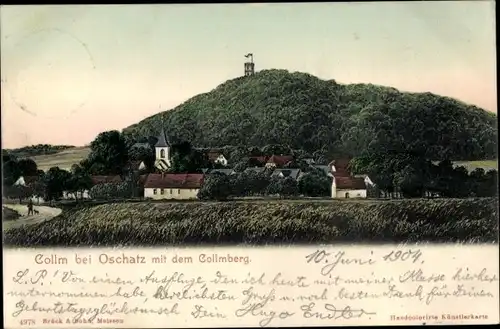 Collm bei Oschatz mit dem Collmberg.
10. Juni 1904.
L. P.! Von einem Ausfluge, den ich heute mit meiner Klasse hierher
unternommen habe, herzlichsten Gruss u. noch besten Dank für Deinen
Geburtstagsglückwunsch Dein Hugo Endler.
Handcolorirte Künstlerkarte
4978 Brück & Sohn, Meissen